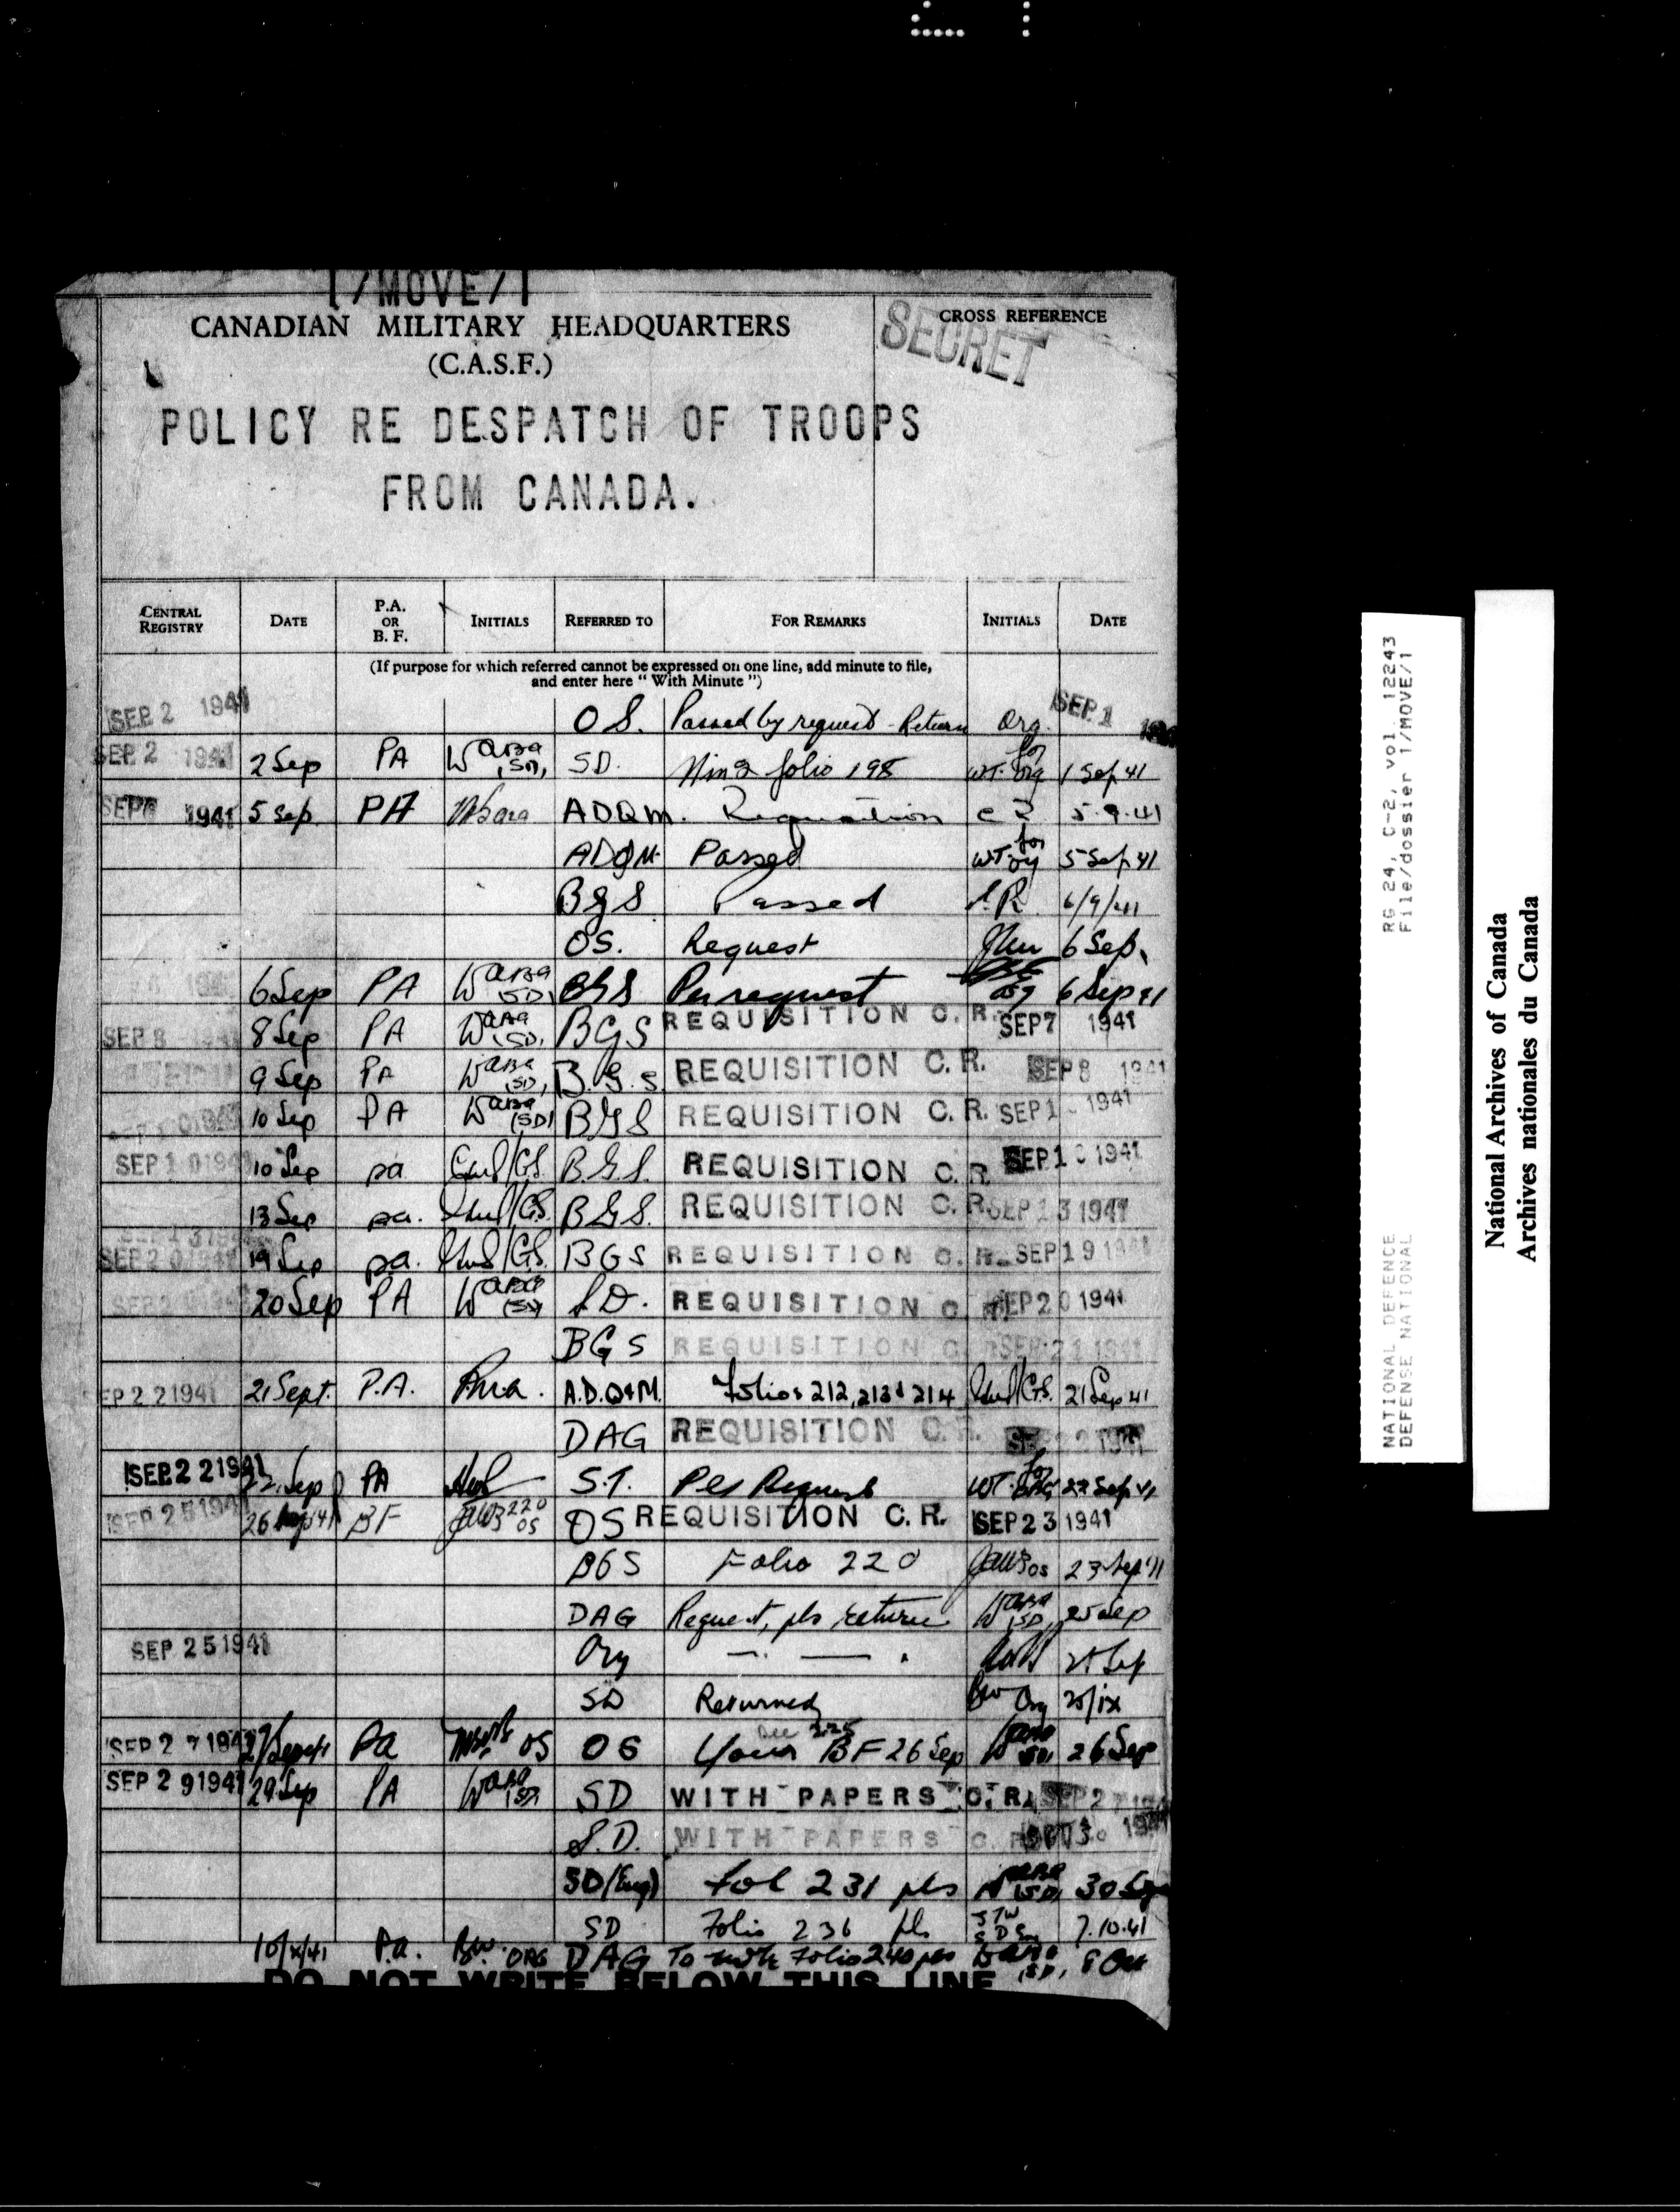 1/MOVE/1
CANADIAN MILITARY HEADQUARTERS
(C.A.S.F.)
CROSS REFERENCE
SECRET
POLICY RE DESPATCH OF TROOPS
FROM CANADA.
CENTRAL REGISTRY DATE P.A. OR B. F. INITIALS REFERRED TO FOR REMARKS INITIALS DATE
(If purpose for which referred cannot be expressed on one line, add minute to file,
and enter here " With Minute ")
SEP 2 1941 OS. Passed by request - Return Org. SEP 1
SEP 2 1941 2 Sep PA (SD) SD. folio 198 for Org 1 Sep 41
SEP 1941 5 Sep. PA ADQM. Requisition 5.9.41
ADQM Passed for 5 Sep 41
BGS Passed 6/9/41
OS. Request 6 Sep.
6 Sep PA (SD) BGS Per request 6 Sep 41
SEP 8 8 Sep PA (SD) BGS REQUISITION C.R. SEP 7 1941
9 Sep PA (SD) B.G.S. REQUISITION C.R. SEP 8 1941
10 Sep PA (SD) BGS REQUISITION C.R. SEP 1 1941
SEP 10 1941 10 Sep pa /GS. B.G.S. REQUISITION C.R. SEP 10 1941
13 Sep pa. /GS. BGS. REQUISITION C.R. SEP 13 1941
SEP 20 1941 19 Sep pa. /GS. BGS REQUISITION C.R. SEP 19 1941
20 Sep PA (SD) S.D. REQUISITION C.R. SEP 20 1941
BGS REQUISITION C.R. SEP 21 1941
SEP 22 1941 21 Sept. P.A. A.D.Q&M. Folios 212, 213 & 214 /GS. 21 Sep 41
DAG REQUISITION C.R.
SEP 22 1941 22 Sep PA S.T. Per Request for 22 Sep 41
SEP 25 1941 26 BF 220 OS OS REQUISITION C.R. SEP 23 1941
BGS Folio 220 OS 23 Sep 41
DAG Request, pls return (SD) 25 Sep
SEP 25 1941 Org — . — . 25 Sep
SD Returned Org 25/ix
SEP 27 1941 Pa OS OS Your BF 26 Sep (SD) 26 Sep
SEP 29 1941 29 Sep PA (SD) SD WITH PAPERS C.R. SEP 27
S.D. WITH PAPERS C.R.
SD (Eng) Fol 231 pls (SD) 30 Sep
SD Folio 236 pls 7.10.41
10/x/41 Pa. BW. ORG DAG To Folio 240 pls (SD) 8 Oct
DO NOT WRITE BELOW THIS LINE
RG 24, C-2, vol. 12243
File/dossier 1/MOVE/1
NATIONAL DEFENCE
DEFENSE NATIONAL
National Archives of Canada
Archives nationales du Canada